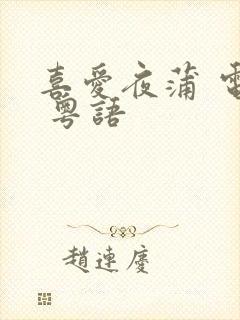 喜愛夜蒲 電
粵語
趙連慶